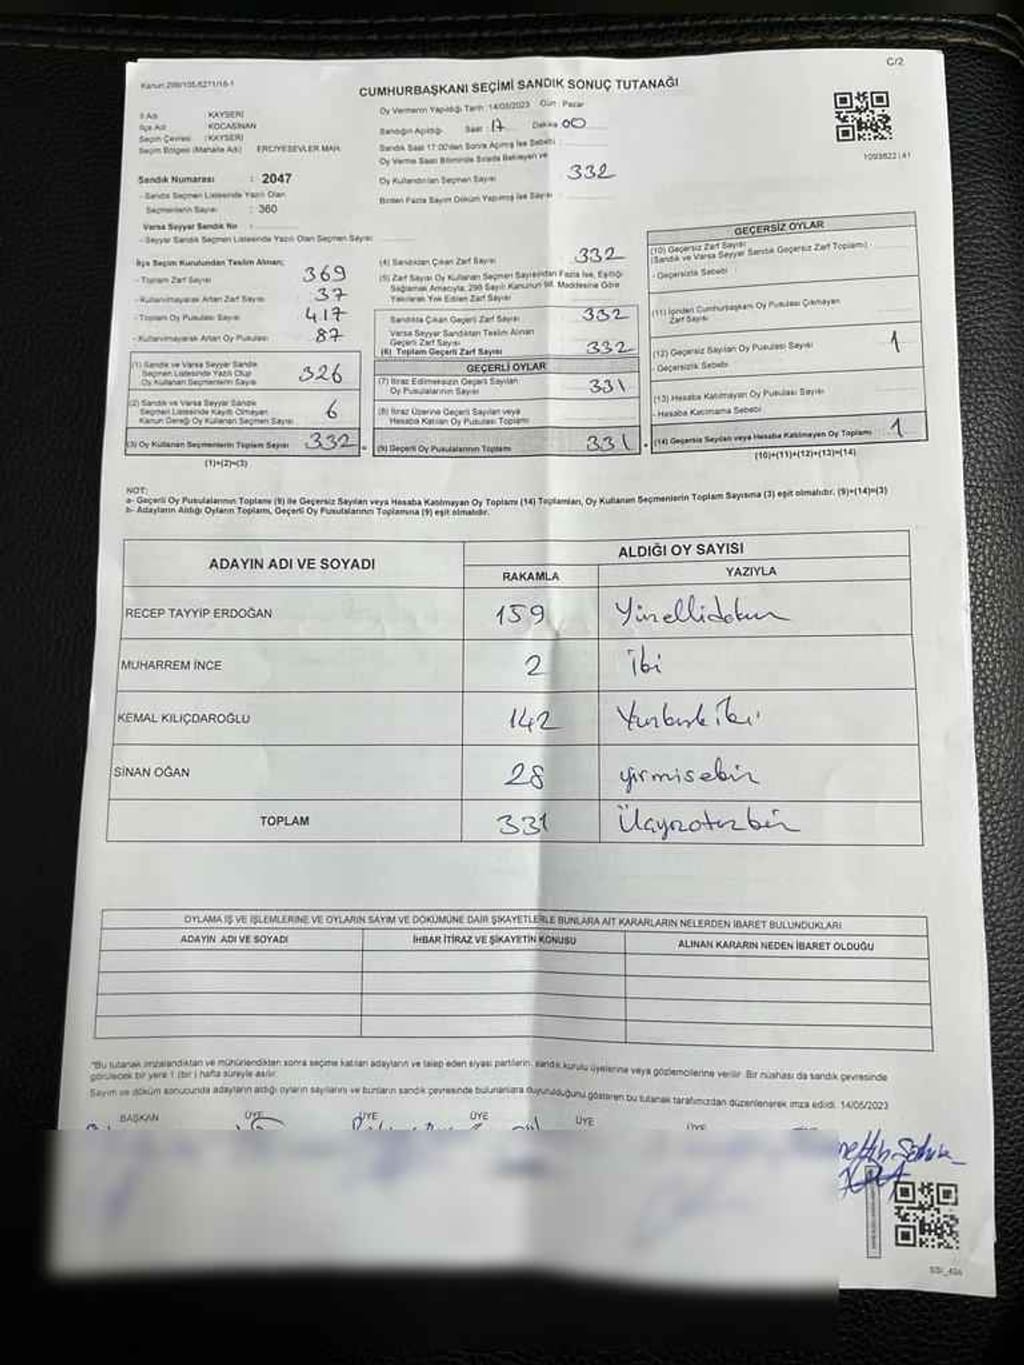 C/2
Kanun:298/105,6271/16-1
CUMHURBAŞKANI SEÇİMİ SANDIK SONUÇ TUTANAĞI
İl Adı : KAYSERİ
İlçe Adı : KOCASİNAN
Seçim Çevresi : (KAYSERİ)
Seçim Bölgesi (Mahalle Adı) ERCİYESEVLER MAH.
Sandık Numarası : 2047
- Sandık Seçmen Listesinde Yazılı Olan
Seçmenlerin Sayısı : 360
Varsa Seyyar Sandık No :
- Seyyar Sandık Seçmen Listesinde Yazılı Olan Seçmen Sayısı:
Oy Vermenin Yapıldığı Tarih :14/05/2023 Gün : Pazar
Sandığın Açıldığı Saat : 17 Dakika 00
Sandık Saat 17:00'den Sonra Açılmış İse Sebebi :
Oy Verme Saati Bitiminde Sırada Bekleyen ve
Oy Kullandırılan Seçmen Sayısı 332
Birden Fazla Sayım Döküm Yapılmış İse Sayısı
1093822 | 41
İlçe Seçim Kurulundan Teslim Alınan;
- Toplam Zarf Sayısı 369
- Kullanılmayarak Artan Zarf Sayısı 37
- Toplam Oy Pusulası Sayısı 417
- Kullanılmayarak Artan Oy Pusulası 87
(1) Sandık ve Varsa Seyyar Sandık
Seçmen Listesinde Yazılı Olup
Oy Kullanan Seçmenlerin Sayısı 326
(2) Sandık ve Varsa Seyyar Sandık
Seçmen Listesinde Kayıtlı Olmayan
Kanun Gereği Oy Kullanan Seçmen Sayısı 6
(3) Oy Kullanan Seçmenlerin Toplam Sayısı 332 =
(1)+(2)=(3)
(4) Sandıktan Çıkan Zarf Sayısı 332
(5) Zarf Sayısı Oy Kullanan Seçmen Sayısından Fazla İse, Eşitliği
Sağlamak Amacıyla, 298 Sayılı Kanunun 98. Maddesine Göre
Yakılarak Yok Edilen Zarf Sayısı
Sandıkta Çıkan Geçerli Zarf Sayısı 332
Varsa Seyyar Sandıktan Teslim Alınan
Geçerli Zarf Sayısı
(6) Toplam Geçerli Zarf Sayısı 332
GEÇERLİ OYLAR
(7) İtiraz Edilmeksizin Geçerli Sayılan
Oy Pusulalarının Sayısı 331
(8) İtiraz Üzerine Geçerli Sayılan veya
Hesaba Katılan Oy Pusulaları Toplamı
(9) Geçerli Oy Pusulalarının Toplamı 331 +
GEÇERSİZ OYLAR
(10) Geçersiz Zarf Sayısı
(Sandık ve Varsa Seyyar Sandık Geçersiz Zarf Toplamı)
- Geçersizlik Sebebi
(11) İçinden Cumhurbaşkanı Oy Pusulası Çıkmayan
Zarf Sayısı
(12) Geçersiz Sayılan Oy Pusulası Sayısı 1
- Geçersizlik Sebebi
(13) Hesaba Katılmayan Oy Pusulası Sayısı
- Hesaba Katılmama Sebebi
(14) Geçersiz Sayılan veya Hesaba Katılmayan Oy Toplamı 1
(10)+(11)+(12)+(13)=(14)
NOT:
a- Geçerli Oy Pusulalarının Toplamı (9) ile Geçersiz Sayılan veya Hesaba Katılmayan Oy Toplamı (14) Toplamları, Oy Kullanan Seçmenlerin Toplam Sayısına (3) eşit olmalıdır. (9)+(14)=(3)
b- Adayların Aldığı Oyların Toplamı, Geçerli Oy Pusulalarının Toplamına (9) eşit olmalıdır.
ADAYIN ADI VE SOYADI ALDIĞI OY SAYISI
RAKAMLA YAZIYLA
RECEP TAYYİP ERDOĞAN 159 Yüzellidokuz
MUHARREM İNCE 2 iki
KEMAL KILIÇDAROĞLU 142 Yüzkırkiki
SİNAN OĞAN 28 yirmisekiz
TOPLAM 331 Üçyüzotuzbir
OYLAMA İŞ VE İŞLEMLERİNE VE OYLARIN SAYIM VE DÖKÜMÜNE DAİR ŞİKAYETLERLE BUNLARA AİT KARARLARIN NELERDEN İBARET BULUNDUKLARI
ADAYIN ADI VE SOYADI İHBAR İTİRAZ VE ŞİKAYETİN KONUSU ALINAN KARARIN NEDEN İBARET OLDUĞU
*Bu tutanak imzalandıktan ve mühürlendikten sonra seçime katılan adayların ve talep eden siyasi partilerin, sandık kurulu üyelerine veya gözlemcilerine verilir. Bir nüshası da sandık çevresinde
görülecek bir yere 1 (bir ) hafta süreyle asılır.
Sayım ve döküm sonucunda adayların aldığı oyların sayılarını ve bunların sandık çevresinde bulunanlara duyurulduğunu gösteren bu tutanak tarafımızdan düzenlenerek imza edildi. 14/05/2023
BAŞKAN ÜYE ÜYE ÜYE ÜYE ÜYE